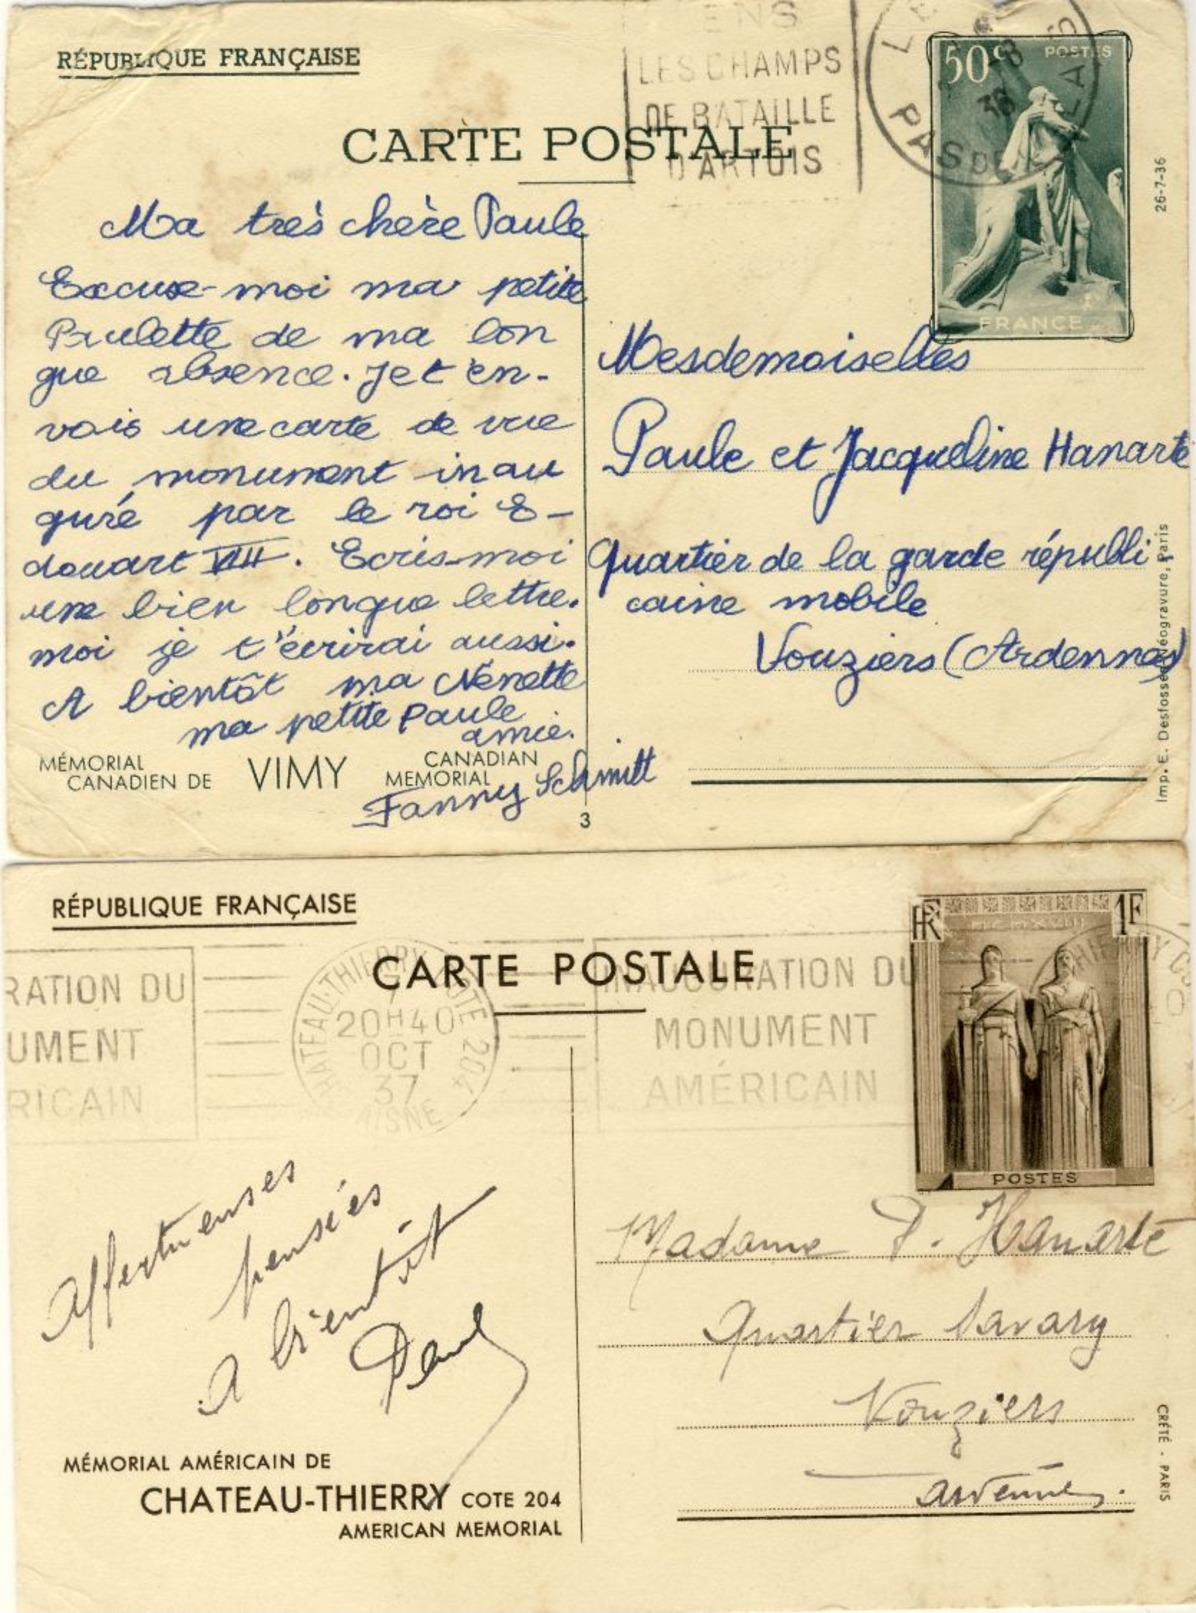 RÉPUBLIQUE FRANÇAISE
ENS
LES CHAMPS
DE BATAILLE
D'ARTOIS
PAS DE CALAIS
36
50c POSTES
FRANCE
26-7-36
CARTE POSTALE
Ma très chère Paule
Excuse-moi ma petite
Paulette de ma lon
gue absence. Je t'en-
vais une carte de vue
du monument inau
guré par le roi E-
douart VIII. Ecris-moi
une bien longue lettre.
moi je t'écrirai aussi.
A bientôt ma Nénette
ma petite Paule
amie.
Fanny Schmitt
Mesdemoiselles
Paule et Jacqueline Hanarte
Quartier de la garde républi
caine mobile
Vouziers (Ardennes)
MÉMORIAL
CANADIEN DE
VIMY
CANADIAN
MEMORIAL
3
Imp. E. Desfossés-Néogravure, Paris
RÉPUBLIQUE FRANÇAISE
CARTE POSTALE
RATION DU
UMENT
RICAIN
CHATEAU-THIERRY COTE 204
7
20H40
OCT
37
AISNE
INAUGURATION DU
MONUMENT
AMÉRICAIN
RF
1F
POSTES
Affectueuses
pensées
A bientôt
Paul
Madame P. Hanarte
Quartier Savary
Vouziers
Ardennes.
MÉMORIAL AMÉRICAIN DE
CHATEAU-THIERRY COTE 204
AMERICAN MEMORIAL
CRÉTÉ - PARIS